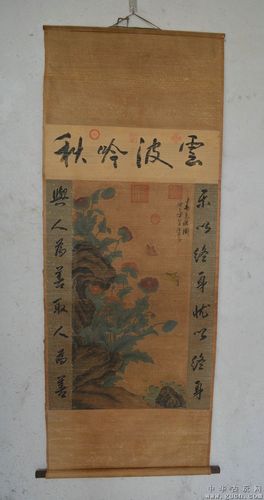 雲波吟秋
乐以終身忧以終身
與人為善取人為善
中华古玩网
www.gucn.com